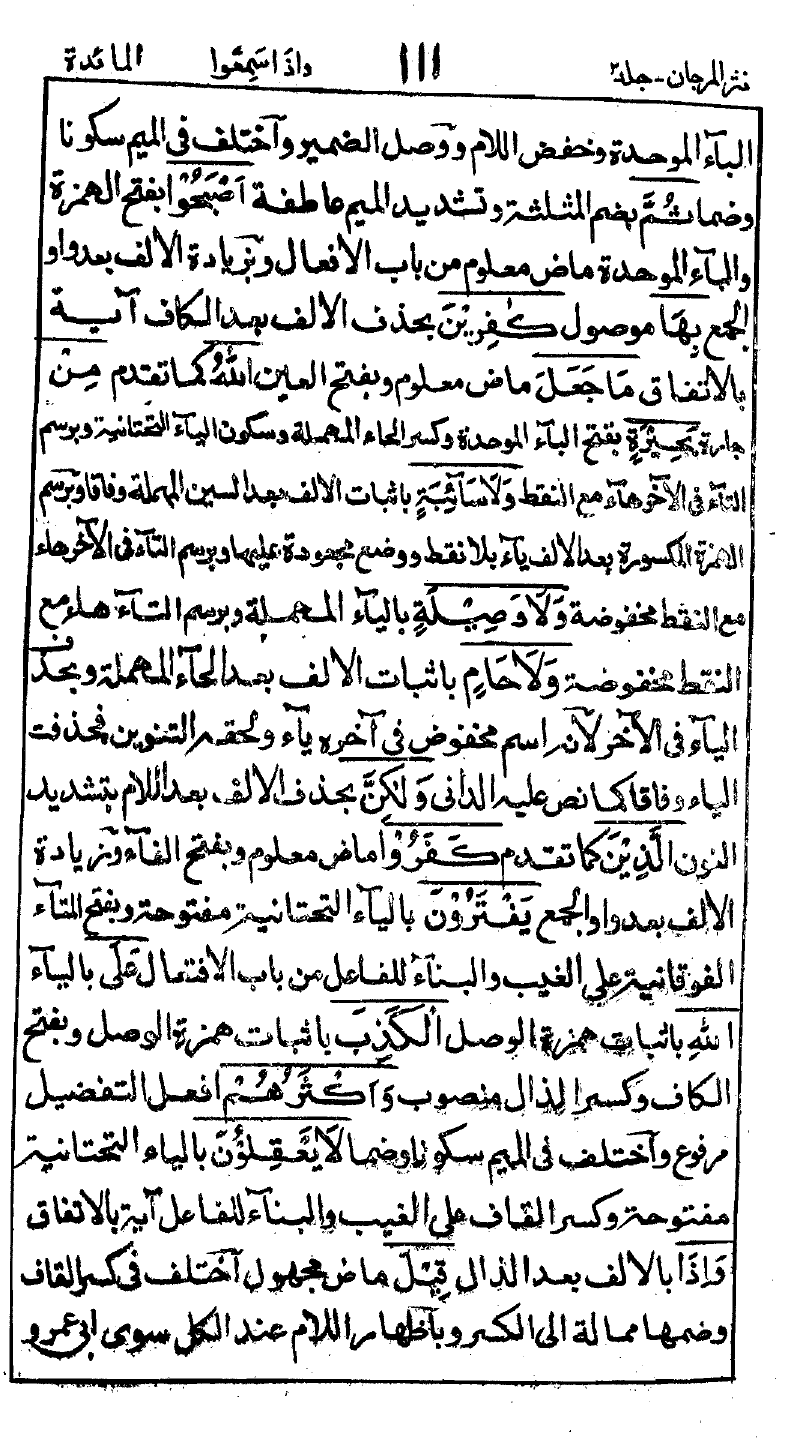 نثر المرجان - جلد ٢ ١١١ واذا سمعوا المائدة
البآء الموحدة وخفض اللام ووصل الضمير وآختلف فى الميم سكونا
وضما ثُمَّ بضم المثلثة وتشديد الميم عاطفة اَصْبَحُوْا بفتح الهمزة
والبآء الموحدة ماض معلوم من باب الافعال وبزيادة الالف بعد واو
الجمع بِهَا موصول كٰفِرِيْنَ بحذف الالف بعد الكاف آية
بالاتفاق مَا جَعَلَ ماض معلوم وبفتح العين اللّٰهُ كما تقدم مِنْ
جارة بَحِيْرَةٍ بفتح البآء الموحدة وكسر الحاء المهملة وسكون اليآء التحتانية وبرسم
التآء فى الآخر هآء مع النقط وَلَا سَآئِبَةٍ باثبات الالف بعد السين المهملة وفاقا وبرسم
الهمزة المكسورة بعد الالف يآء بلا نقط ووضع مجعودة عليها وبرسم التآء فى الآخر هاء
مع النقط مخفوضة وَلَا وَصِيْلَةٍ باليآء المهملة وبرسم التآء هاء مع
النقط مخفوضة وَلَا حَامٍ باثبات الالف بعد الحآء المهملة وبحذف
اليآء فى الآخر لأنه اسم مخفوض فى آخره يآء ولحقه التنوين فحذفت
الياء وفاقا كما نص عليه الدانى وَلٰكِنَّ بحذف الالف بعد اللام بتشديد
النون الَّذِيْنَ كما تقدم كَفَرُوْا ماض معلوم وبفتح الفآء وبزيادة
الالف بعد واو الجمع يَفْتَرُوْنَ باليآء التحتانية مفتوحة وبفتح التآء
الفوقانية على الغيب والبنآء للفاعل من باب الافتعال عَلَى باليآء
اللّٰهِ باثبات همزة الوصل الْكَذِبَ باثبات همزة الوصل وبفتح
الكاف وكسر الذال منصوب وَاَكْثَرُهُمْ افعل التفضيل
مرفوع وآختلف فى الميم سكونا وضما لَا يَعْقِلُوْنَ بالياء التحتانية
مفتوحة وكسر القاف على الغيب والبنآء للفاعل آية بالاتفاق
وَاِذَا بالالف بعد الذال قِيْلَ ماض مجهول آختلف فى كسر القاف
وضمها ممالة الى الكسر وبآظهار اللام عند الكل سوى ابى عمرو